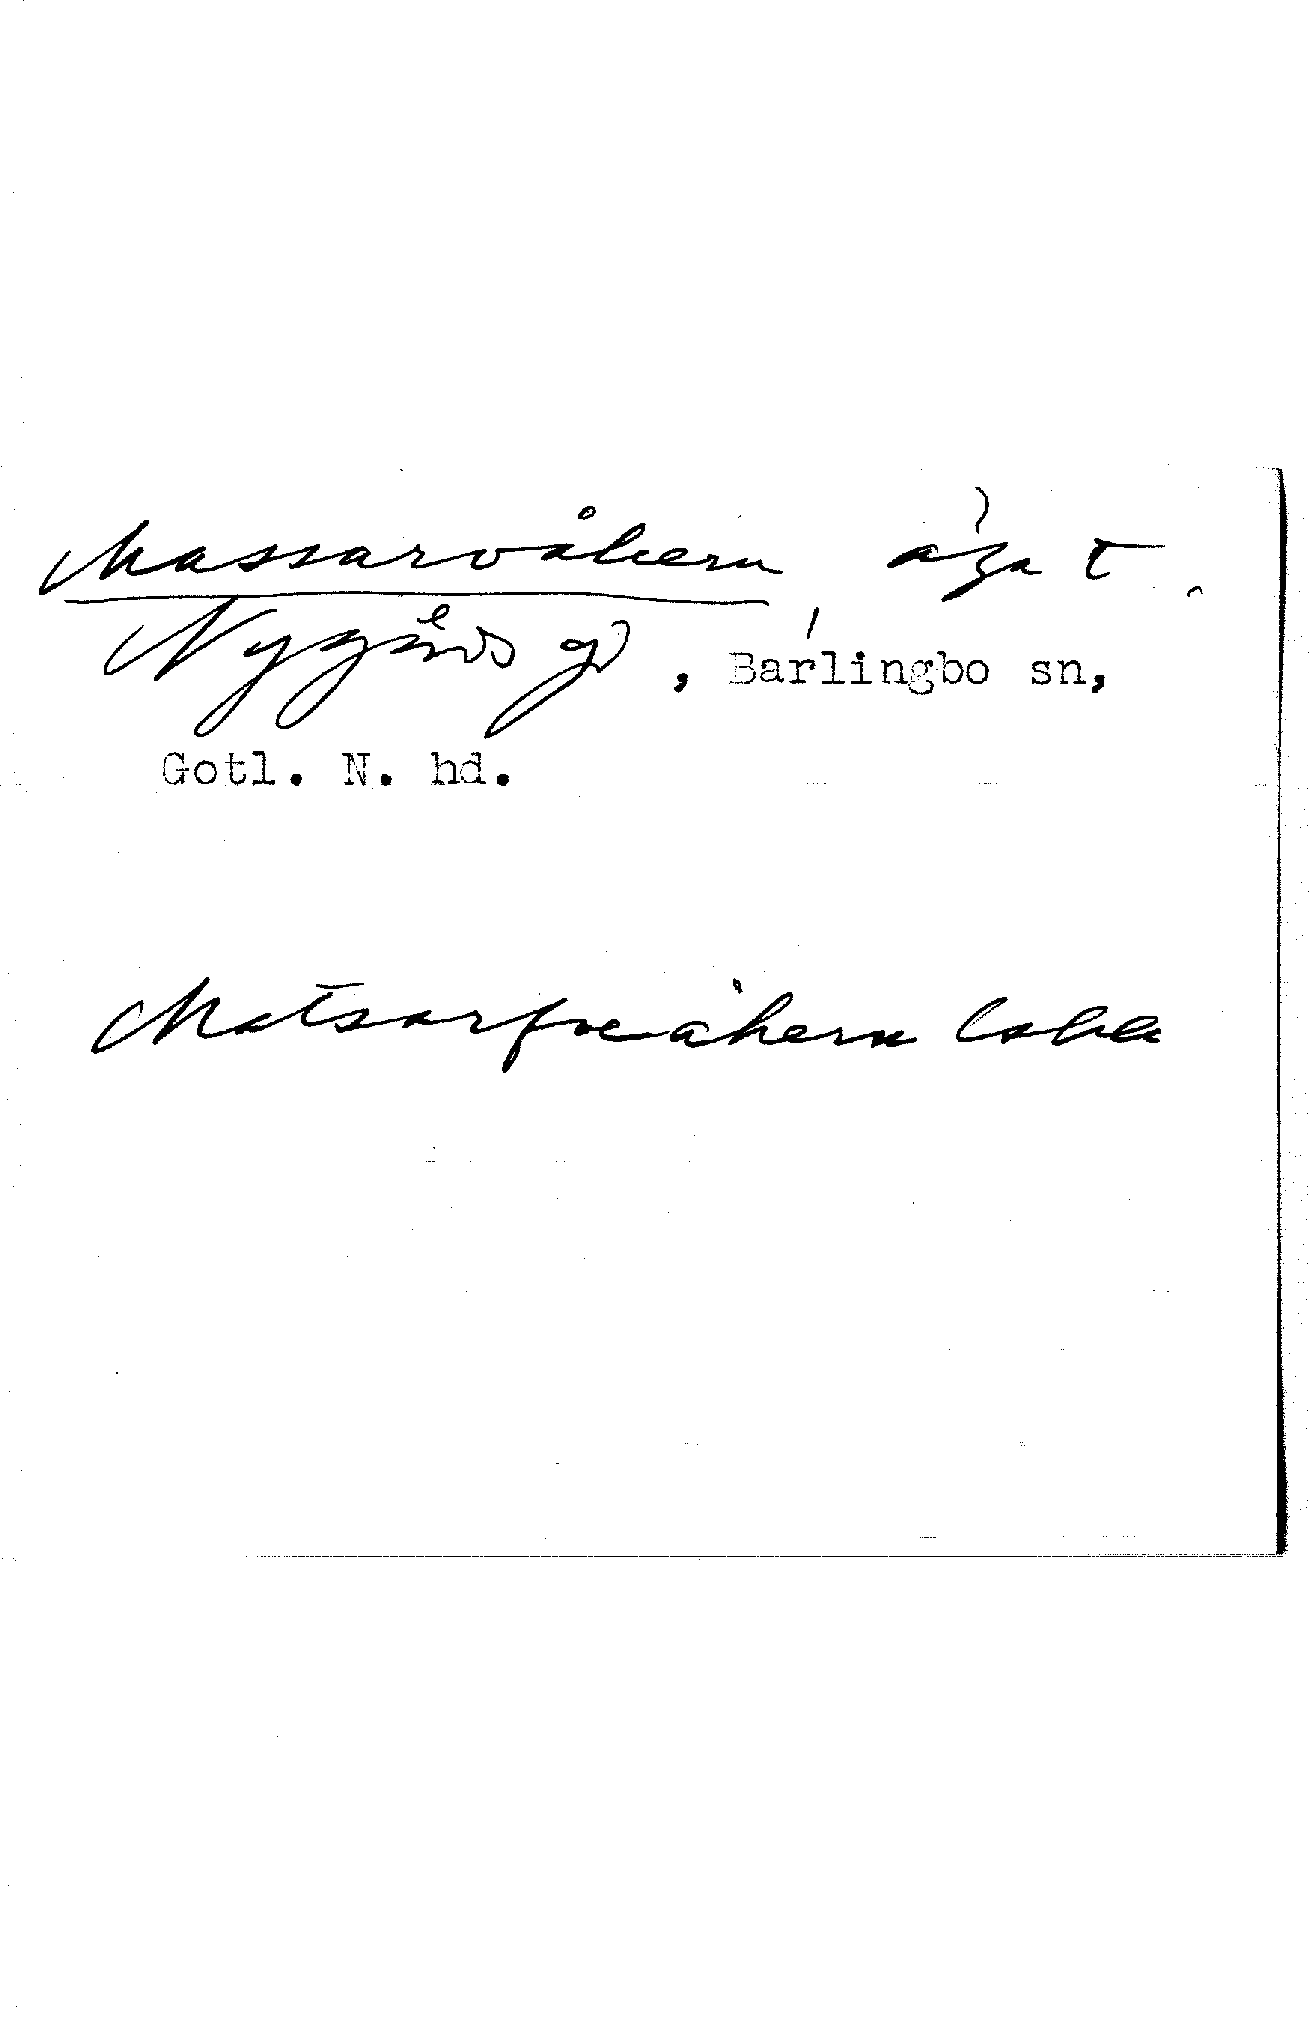 Massarvåkern åga t
Nygårds gd, Barlingbo sn,
Gotl. N. hd.
Matsarfveåkern